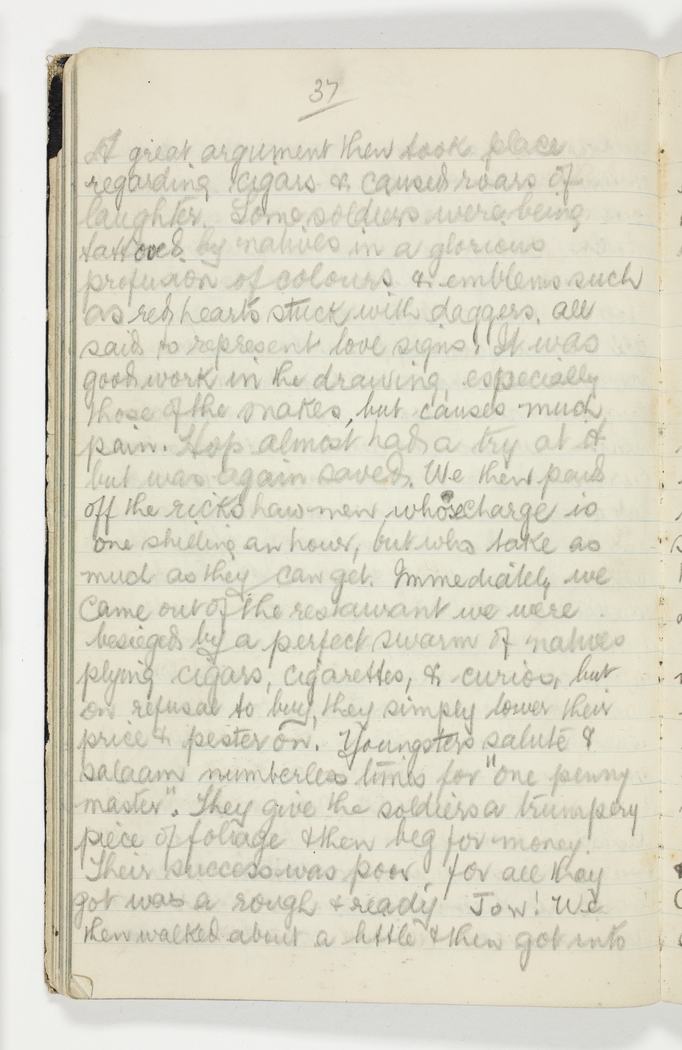 37
A great argument then took place
regarding cigars & caused roars of
laughter. Some soldiers were being
tattooed by natives in a glorious
profusion of colours & emblems such
as red hearts stuck with daggers, all
said to represent love signs. It was
good work in the drawing, especially
those of the snakes, but causes much
pain. Hop almost had a try at it
but was again saved. We then paid
off the rickshaw men whose charge is
one shilling an hour, but who take as
much as they can get. Immediately we
came out of the restaurant we were
besieged by a perfect swarm of natives
plying cigars, cigarettes, & curios, but
on refusal to buy, they simply lower their
price & pester on. Youngsters salute &
salaam numberless times for "one penny
master". They give the soldiers a trumpery
piece of foliage & then beg for money.
Their success was poor for all they
got was a rough & ready Jow! We
then walked about a little & then got into